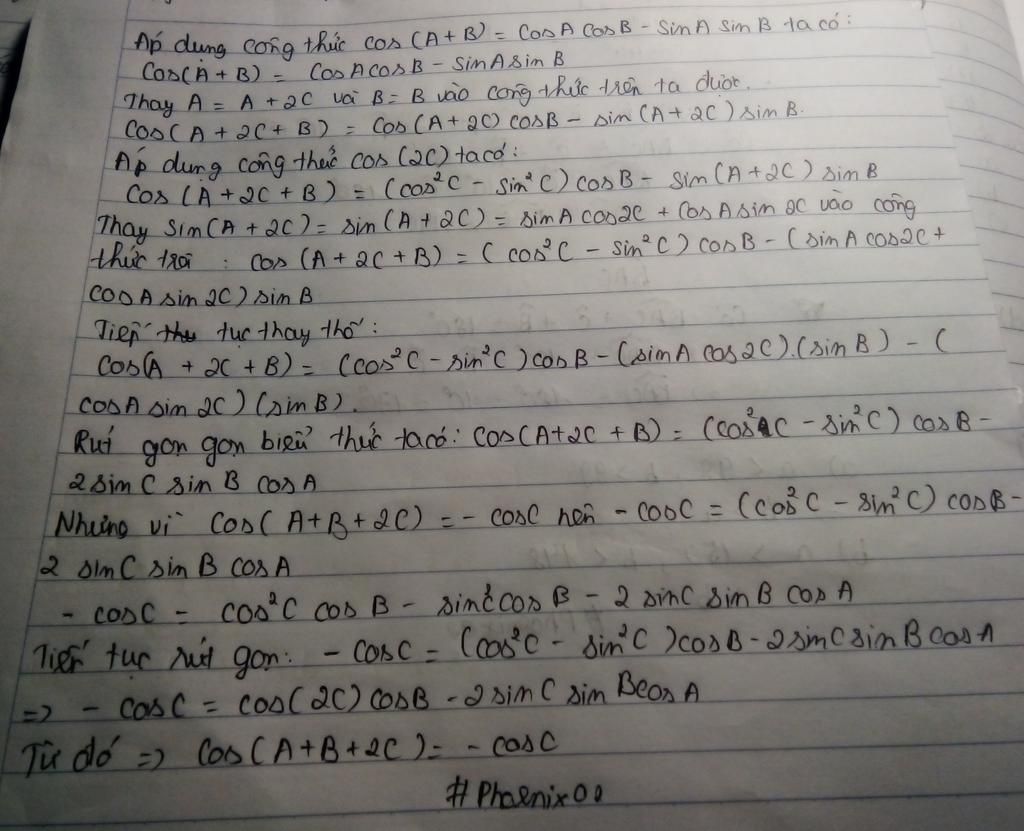 Áp dụng công thức cos (A+B) = cosA cosB - sinA sinB ta có:
Cos(A+B) = cosAcosB - sinAsinB
Thay A = A + 2C và B = B vào công thức trên ta được.
Cos(A + 2C + B) = cos(A+2C) cosB - sin(A+2C) sinB.
Áp dụng công thức cos (2C) ta có:
Cos (A + 2C + B) = (cos²C - sin²C) cosB - sin(A+2C) sinB
Thay sin(A + 2C) = sin(A + 2C) = sinA cos2C + cosA sin 2C vào công
thức trên : cos (A + 2C + B) = (cos²C - sin²C) cosB - (sinA cos2C +
cosA sin 2C) sinB
Tiếp tục thay thế:
Cos(A + 2C + B) = (cos²C - sin²C) cosB - (sinA cos2C).(sinB) - (
cosA sin 2C) (sinB).
Rút gọn gọn biểu thức ta có: cos(A+2C + B) = (cos²C - sin²C) cosB -
2 sinC sin B cosA
Nhưng vì cos(A+B+2C) = - cosC nên - cosC = (cos²C - sin²C) cosB -
2 sinC sin B cosA
- cosC = cos²C cos B - sin²C cos B - 2 sinC sin B cos A
Tiếp tục rút gọn: - cosC = (cos²C - sin²C) cosB - 2 sinC sin B cosA
=> - cosC = cos(2C) cosB - 2 sinC sin B cosA
Từ đó => cos(A+B+2C) = - cosC
# Phoenix00